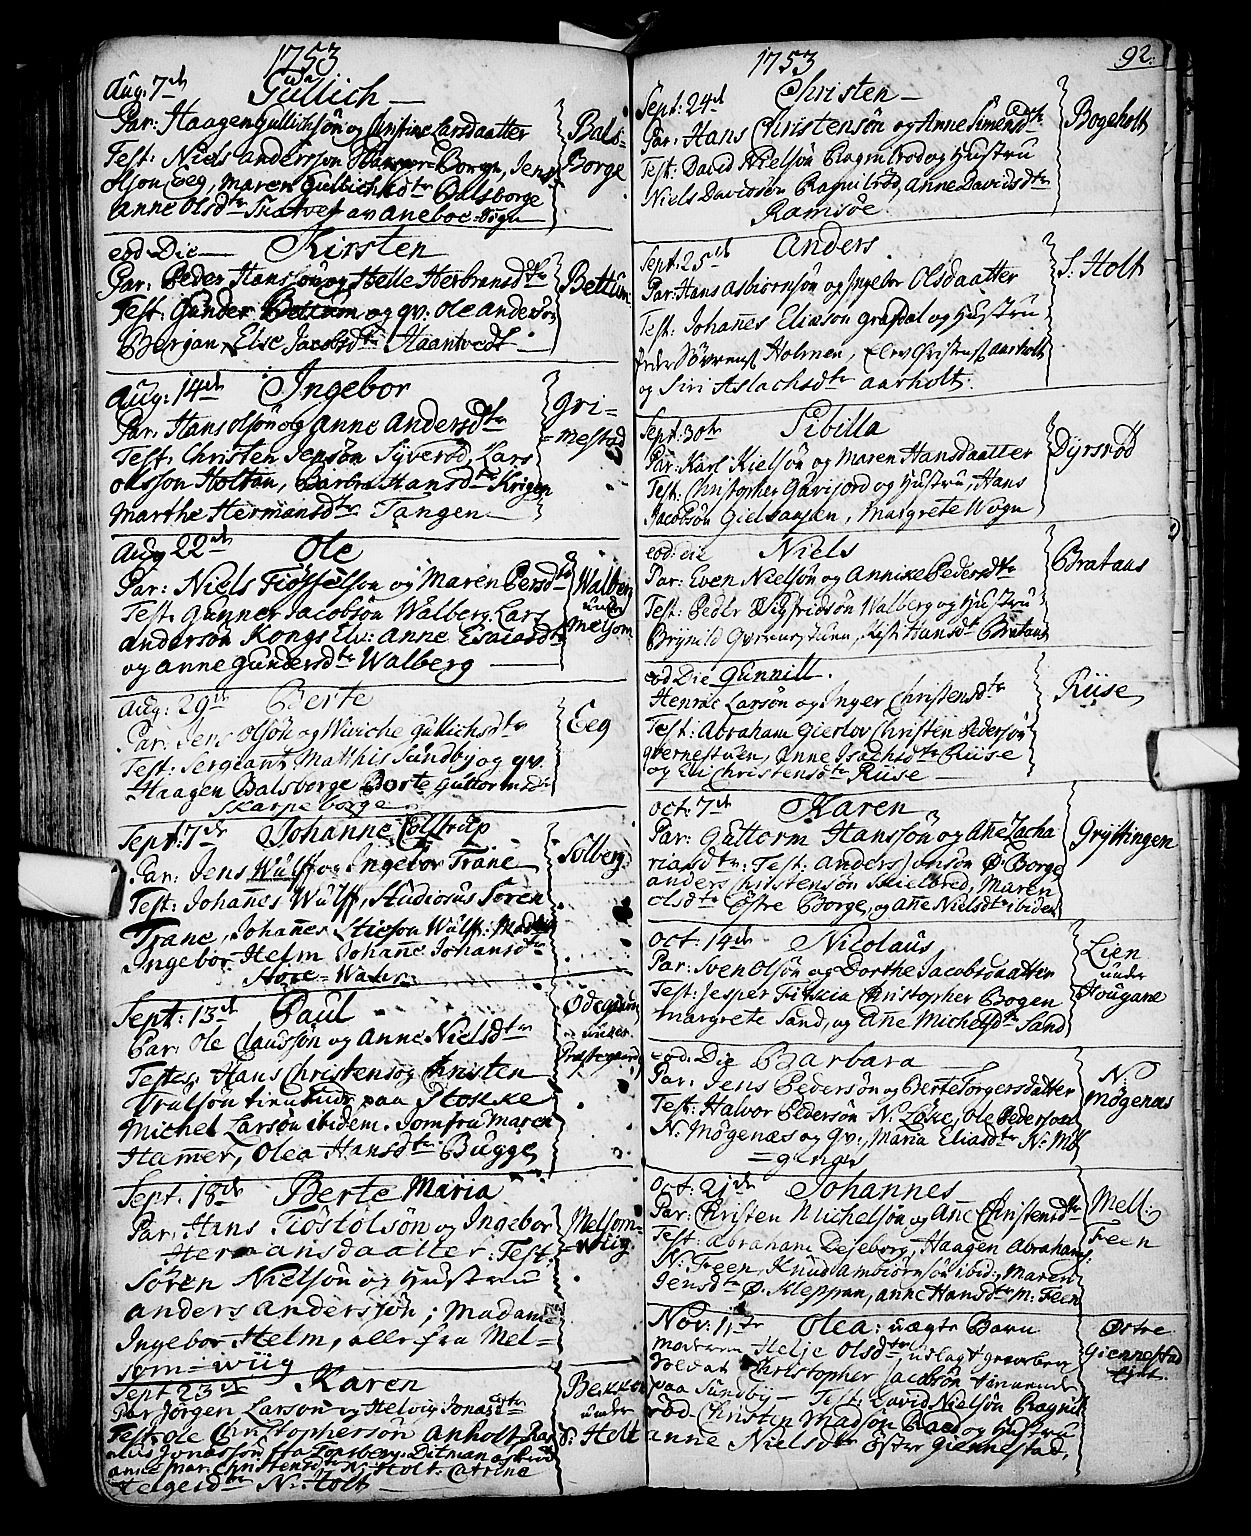 1753
Aug: 7de Gullich
Par: Haagen Gullichsön og Christine Larsdaatter
Test: Niels Anderssön Borge, Jens
Olsön Eeg, Maren Gullichsdtr Balsborge
Anne Olsdtr
Bals-
Borge
eod: Die Kirsten
Par: Peder Hanssön og Helle Herbransdtr
Test: Gunder Bettum og qv: Ole Andersön
Bergan, Else Jacobsdtr Haantvedt
Bettum
Aug: 14de Ingebor
Par: Hans Olsön og Anne Andersdtr
Test: Christen Jensön Syverød, Lars
Olsson Holtan, Barbra Hansdtr Krigen
Marthe Hermansdtr Tangen
Gri=
=mestad
Aug 22de Ole
Par: Niels Fiösfelsön og Maren Persdtr
Test: Gunner Jacobsön Walberg, Lars
Andersön Kongs Elv: Anne Esaiasdtr
og Anne Gundersdtr Walberg
Walberg
under
Melsom
Aug: 29de Berte
Par: Jens Olsön og Wiviche Gullichsdtr
Test: Sergeant Matthis Sundby og qv.
Haagen Balsborge Berte Guttormsdr
Skarpeborge
Eeg
Sept: 7de Johanne Colstrup
Par: Jens Wulff og Ingebor Trane
Test: Johannes Wulff, Studiosus Sören
Trane, Johannes Stieson Wulff: Madam
Ingebor Helm Johanne Johansdtr
Solberg
Sept: 13de Paul
Par: Ole Claussön og Anne Nielsdtr
Test: Hans Christens og Christen
Trulsön tienende paa Stokke
Michel Larsön ibidem. Jomfru Maren
Hamer, Olea Hansdtr Bugge
Ödegaard
under
Præstegaard
Sept. 18de Berte Maria
Par: Hans Tiöstolsön og Ingebor
Hermansdaatter: Test:
Sören Nielsön og Hustrue
Anders Andersön; Madame
Ingebor Helm, alle fra Mel=
som=wiig
Melsom=
=wiig
Sept 23de Karen
Par Jörgen Larson og Helvig Jonasdtr
Test Ole Christophersön Anholt, Ras
Anne Mar. Christensdtr N: Holt. Catrine
Helgesdtr N: Holt
Bekken
under
S: Holt
1753 92.
Sept: 24de Christen
Par: Hans Christensön og Anne Simensdtr
Test: David Nielsön Ragnilrod og Hustru
Niels Davidsön Ragnilröd, Anne Davidsdtr
Ramsöe
Bogeholt
Sept: 25de Anders
Par: Hans Asbiornsön og Ingebor Olsdaatter
Test: Johannes Eliæsön Grasdal og Hustru
Holmen, Elev Christens: Aarholt
og Siri Aslachsdtr Aarholt.
S: Holt
Sept: 30te Sibilla
Par: Karl Kielsön og Maren Hansdaatter
Test: Christopher Gavisjord og Hustru, Hans
Jacobsön Gielsaasen, Margrete Wogn
Dyrsröd
eod: die Niels
Par: Even Nielsön og Annike Pedersdtr
Test: Peder Sigfridsön Walberg og Hustru
Brynild Qværnestuen, Kist: Hansdtr Brataas
Brataas
eod Die Gunnill.
Henric Larsön og Inger Christensdtr
Test: Abraham Gierlov Christen Pedersön
Qvernestuen, Anne Isachsdtr Riise
og Eli Christensdtr Riise
Riise
Oct: 7de Karen
Par: Guttorm Hanssön og Ane Zacha
riasdtr: Test: Anders Jonsön Ö: Borge
Anders Christensön Skielbred, Maren
Olsdtr Östre Borge, og Ane Nielsdtr ibidem
Gryttingen
Oct: 14de Nicolaus
Par: Sven Olsön og Dorthe Jacobsdaatter
Test: Jesper Fikkia Christopher Bogen
Margrete Sand, og Ane Michelsdtr Sand
Lien
under
Hougane
eod: Die Barbara
Par: Jens Pedersön og Berte Torgersdatter
Test: Halvor Pedersön N: Loke, Ole Pedersön
N: Mögenæs og qv:, Maria Eliasdtr N: Mö
=genæs
N:
Mögenæs
Oct: 21de Johannes
Par: Christen Michelsön og Ane Christensdtr
Test: Abraham Deseborg, Haagen Abrahams:
N: Freen, Knud Ambiörnsön ibid:, Maren
Jensdtr Ö: Kleppan, Anne Hansdtr M: Feen
Mell:
Freen
Nov: 11te Olea: uægte Barn
Moderen Helje Olsdtr, udlagt: geworben
Soldat Christopher Jacobsön tienende
paa Sundby Test: David Nielsön Ragnil
röd. Christen Madsön Raae og Hustru
Anne Nielsdtr Öster Giennestad.
Östre
Giennestad